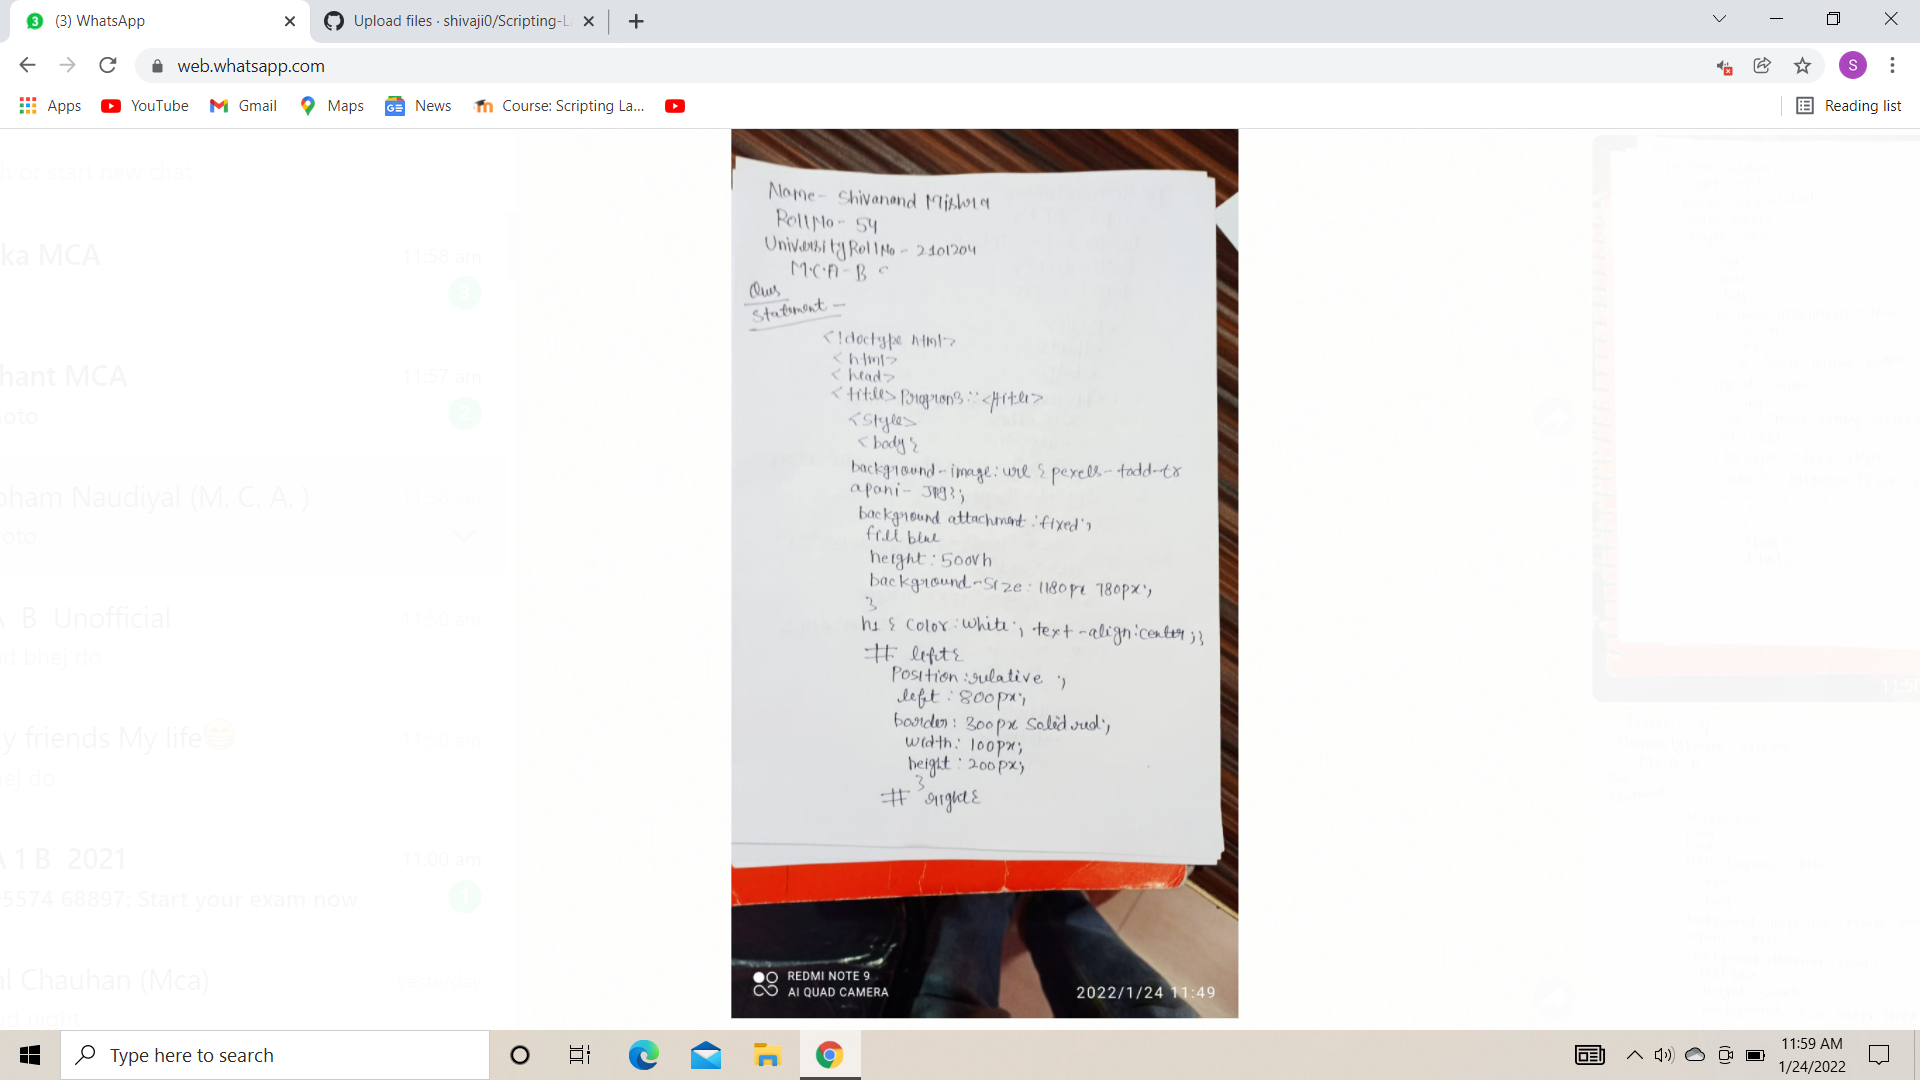 (3) WhatsApp
Upload files · shivaji0/Scripting-L
web.whatsapp.com
S
Apps
YouTube
Gmail
Maps
News
Course: Scripting La...
Reading list
h or start new chat
ka MCA
11:58 am
3
hant MCA
11:57 am
oto
2
oham Naudiyal (M. C. A. )
11:58 am
oto
A B Unofficial
11:50 am
id bhej do
y friends My life😄
11:50 am
ej do
A 1 B 2021
11:00 am
5574 68897: Start your exam now
1
al Chauhan (Mca)
yesterday
Name- Shivanand Mishra
Roll No - 54
University Roll No - 2101204
M.C.A - B
Ques
Statement -
<!doctype html>
<html>
<head>
<title> Program3 :: </title>
<style>
<body {
background-image: url { pexels-todd-tr
apani - JPG};
background attachment : fixed;
fill blue
height : 500vh
background-size : 1180px 780px;
}
h1 { color : white ; text-align:center;}
# left{
Position : relative ;
left : 800px;
border : 300px solid red;
width : 100px;
height : 200px;
}
# right{
REDMI NOTE 9
AI QUAD CAMERA
2022/1/24 11:49
Type here to search
11:59 AM
1/24/2022